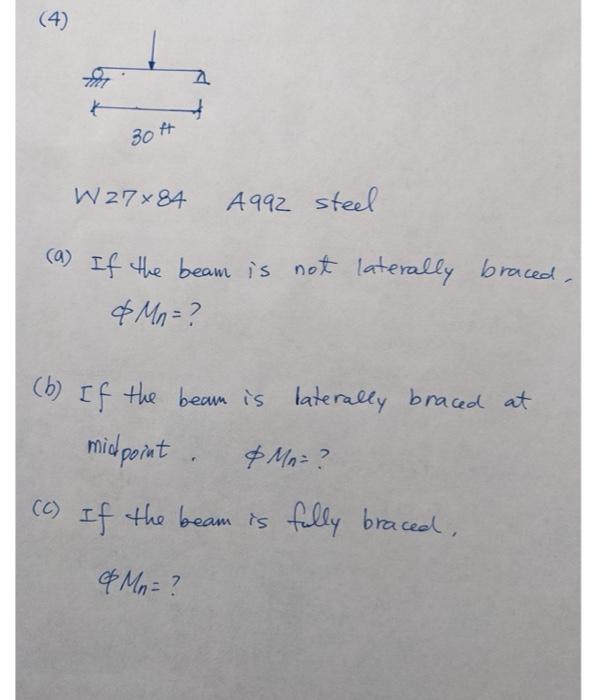 (4)
30 ft
W27×84 A992 steel
(a) If the beam is not laterally braced,
ϕ Mn = ?
(b) If the beam is laterally braced at
midpoint. ϕ Mn = ?
(c) If the beam is fully braced,
ϕ Mn = ?